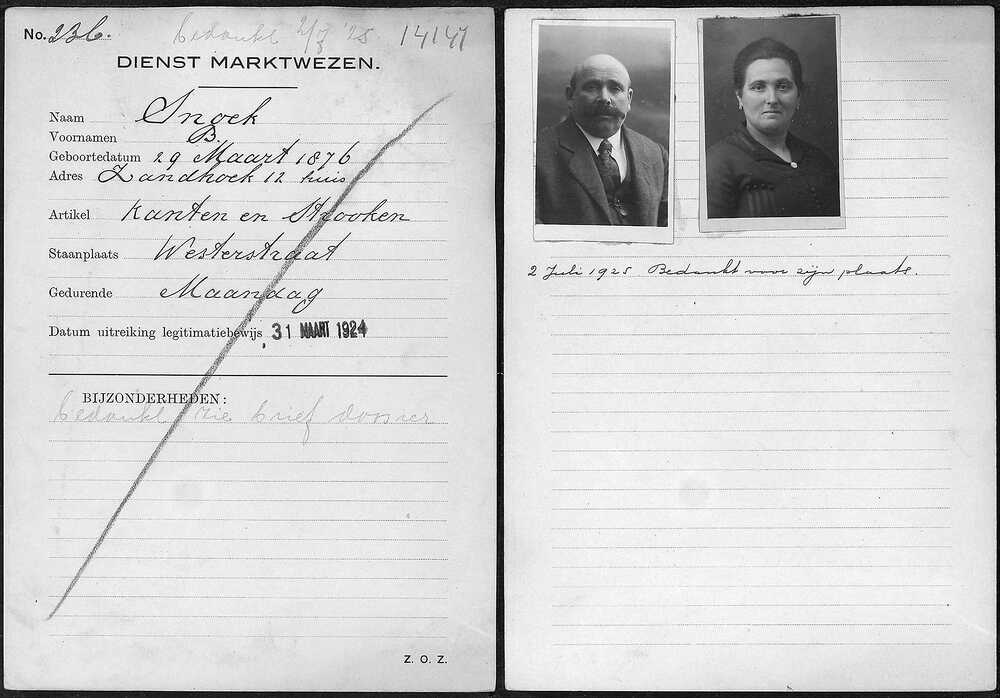 No. 236. bedankt 2/7 '25 14147
DIENST MARKTWEZEN.
Naam Snoek
Voornamen B.
Geboortedatum 29 Maart 1876
Adres Zandhoek 12 huis
Artikel Kanten en Strooken
Staanplaats Westerstraat
Gedurende Maandag
Datum uitreiking legitimatiebewijs 31 MAART 1924
BIJZONDERHEDEN:
bedankt zie brief dossier
Z. O. Z.
2 Juli 1925 Bedankt voor zijn plaats.